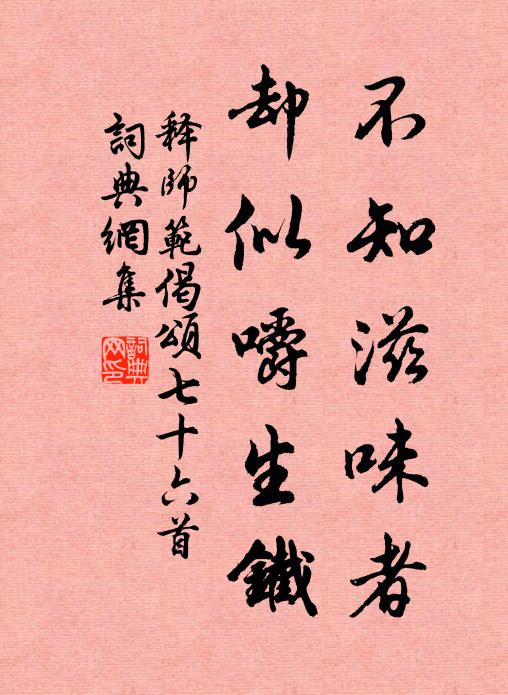 不知滋味者
却似嚼生鐵
释師範偈頌七十六首
詞典網集
詞典網印